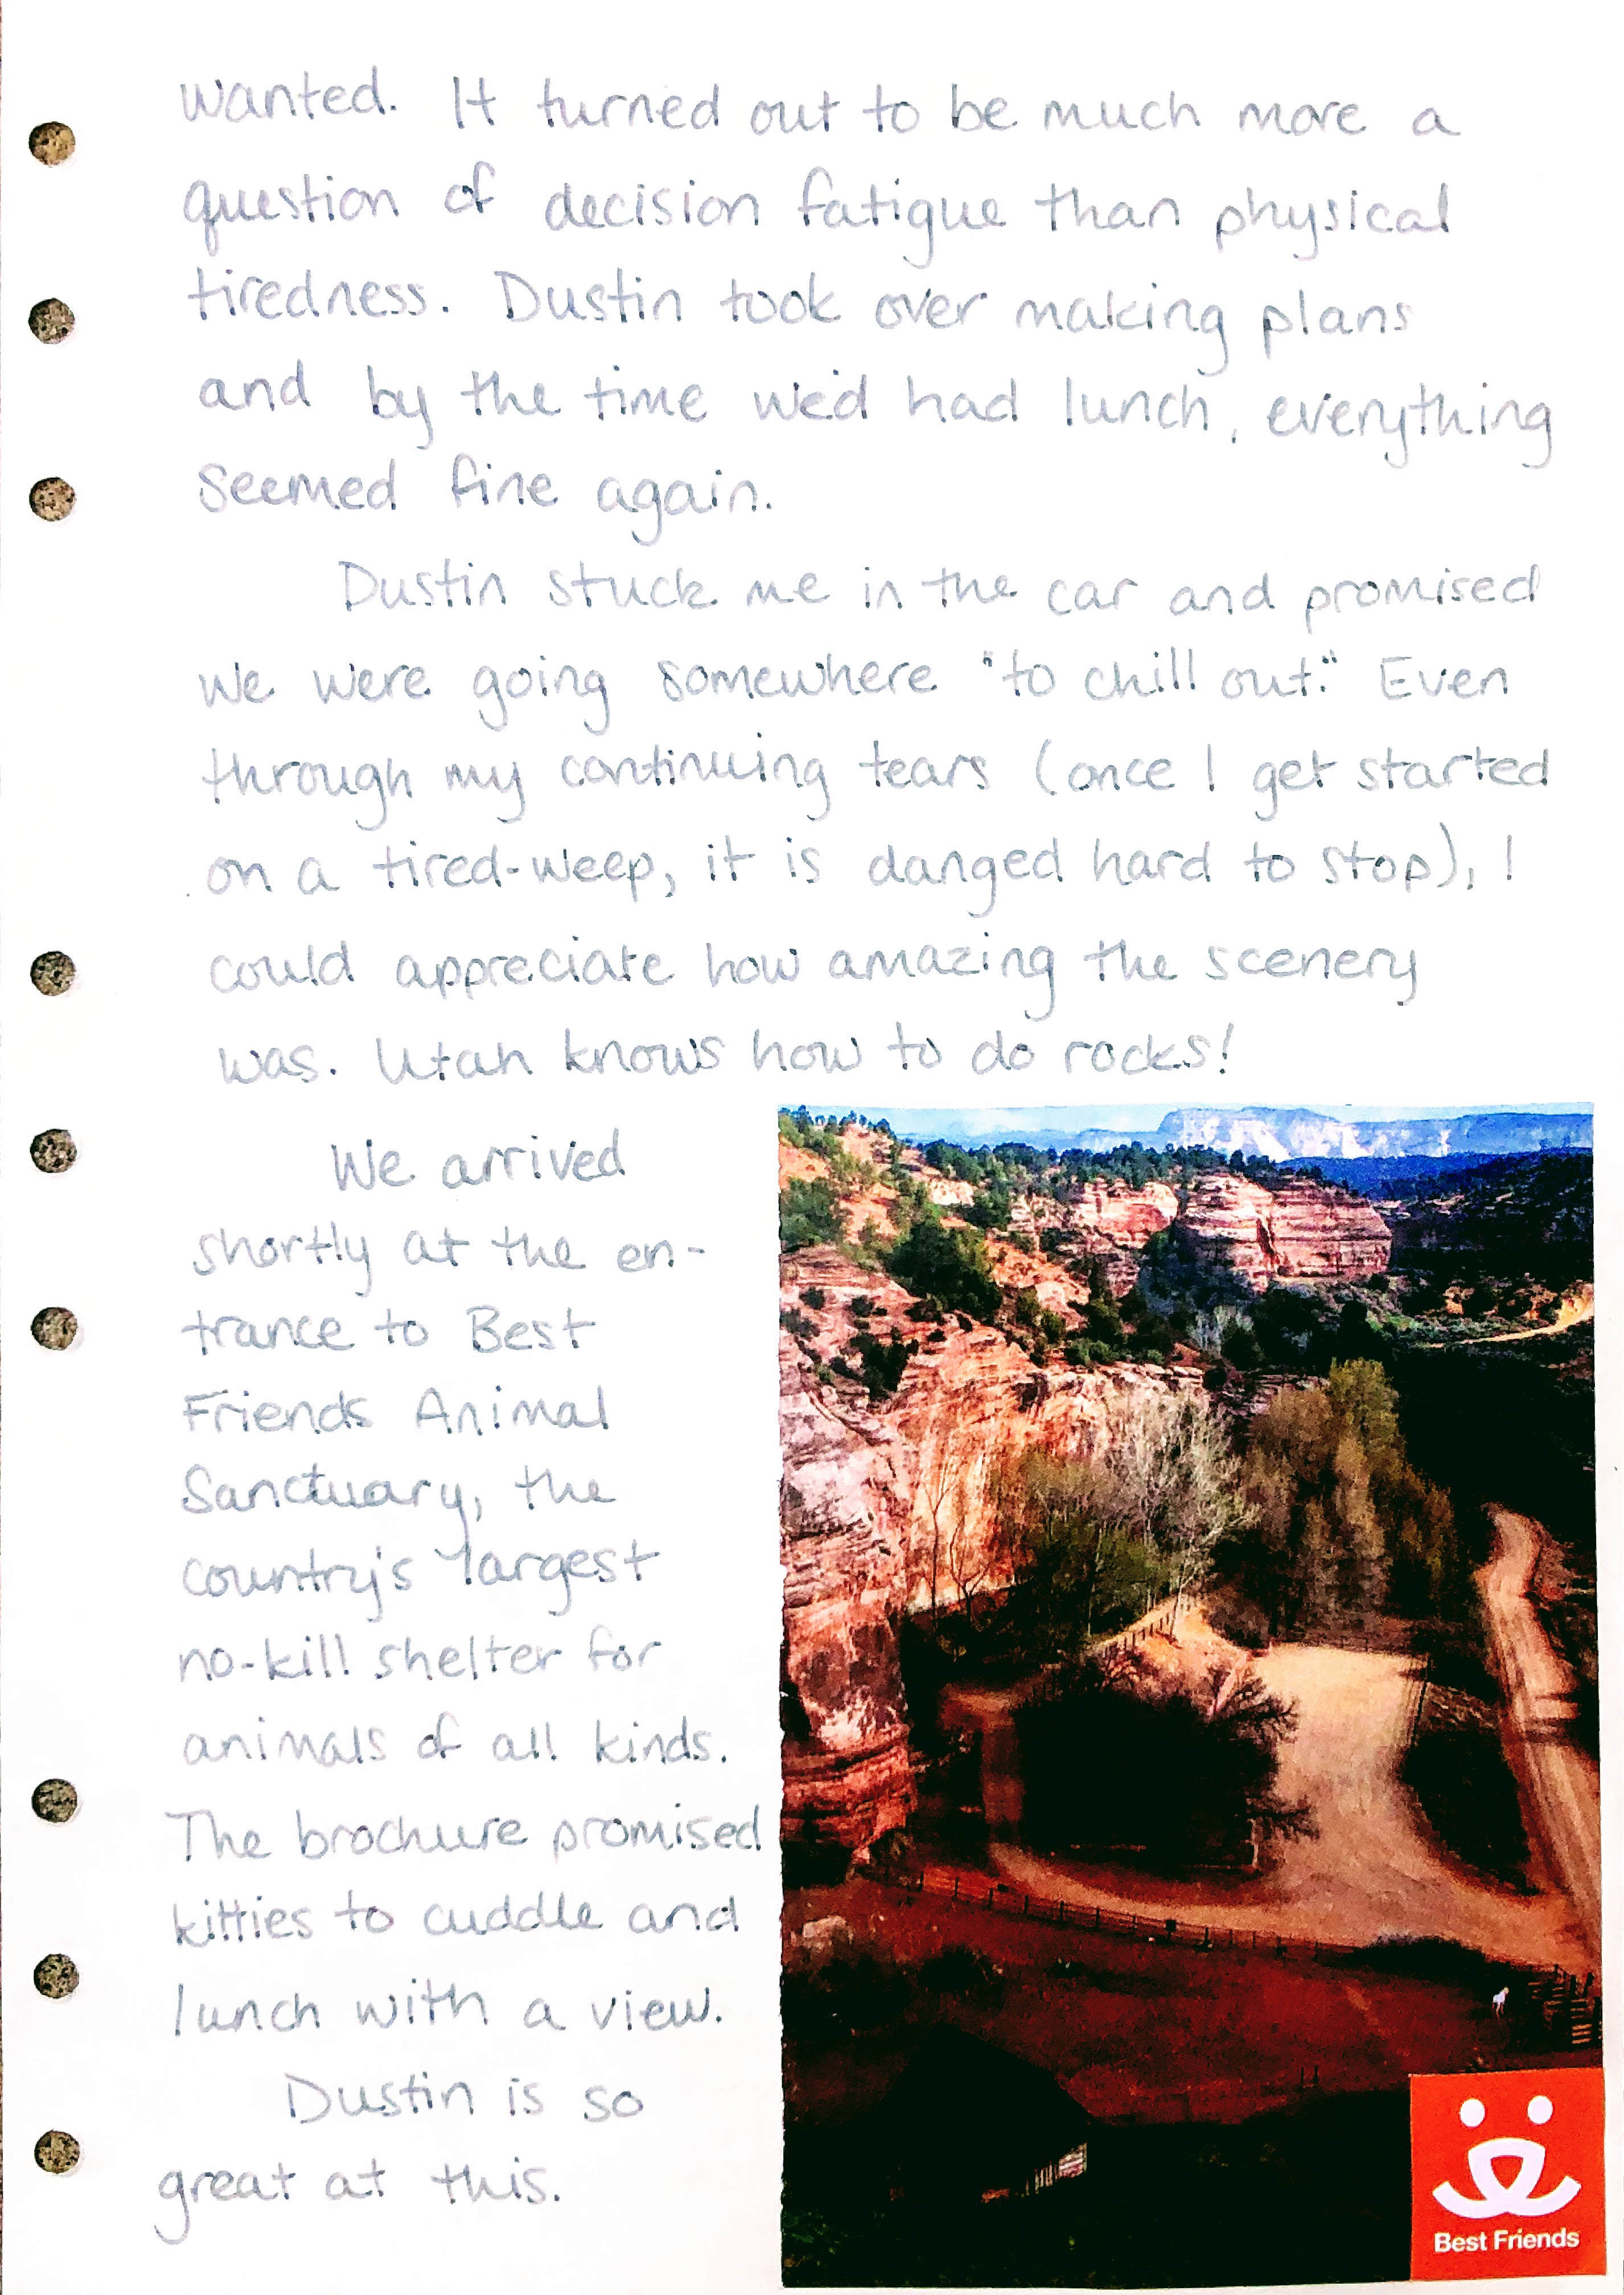 wanted. It turned out to be much more a
question of decision fatigue than physical
tiredness. Dustin took over making plans
and by the time we'd had lunch, everything
seemed fine again.
Dustin stuck me in the car and promised
we were going somewhere "to chill out." Even
through my continuing tears (once I get started
on a tired-weep, it is danged hard to stop), I
could appreciate how amazing the scenery
was. Utah knows how to do rocks!
We arrived
shortly at the en-
trance to Best
Friends Animal
Sanctuary, the
country's largest
no-kill shelter for
animals of all kinds.
The brochure promised
kitties to cuddle and
lunch with a view.
Dustin is so
great at this.
Best Friends